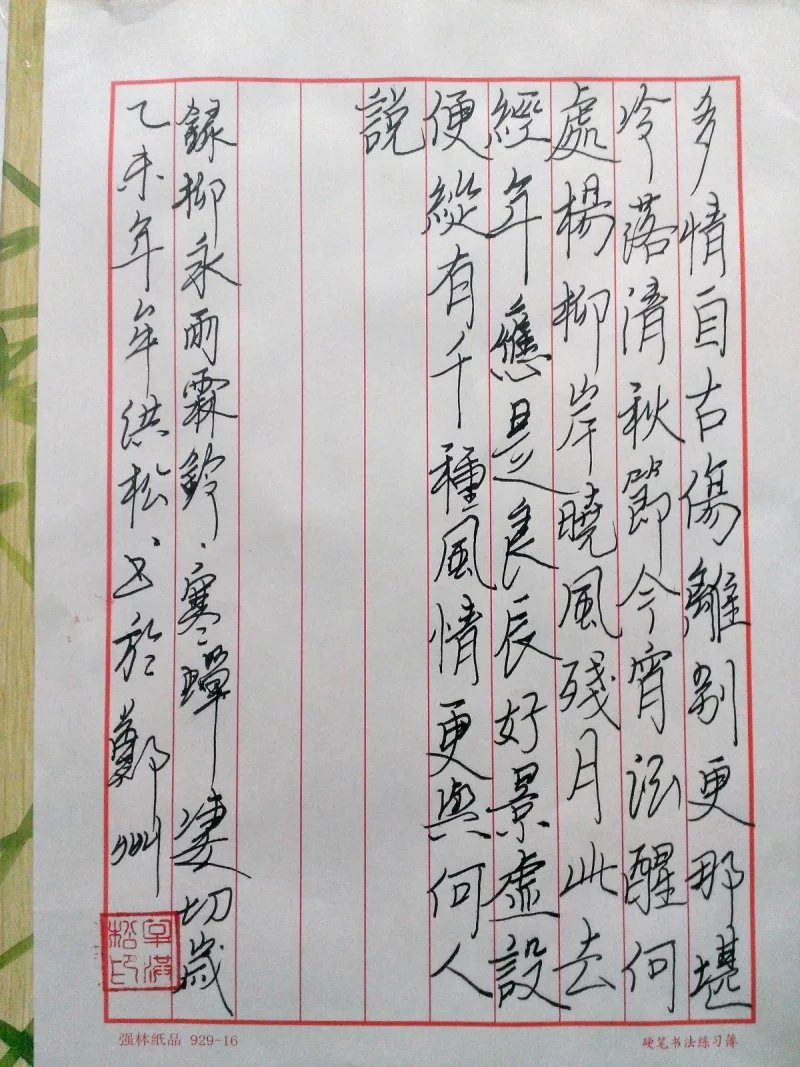 多情自古傷離别更那堪
冷落清秋節今宵酒醒何
處楊柳岸曉風殘月此去
經年應是良辰好景虚設
便縱有千種風情更與何人
說
錄柳永雨霖鈴、寒蟬凄切歲
乙未年年洪松书於鄭州
强林纸品 929-16
硬笔书法练习薄